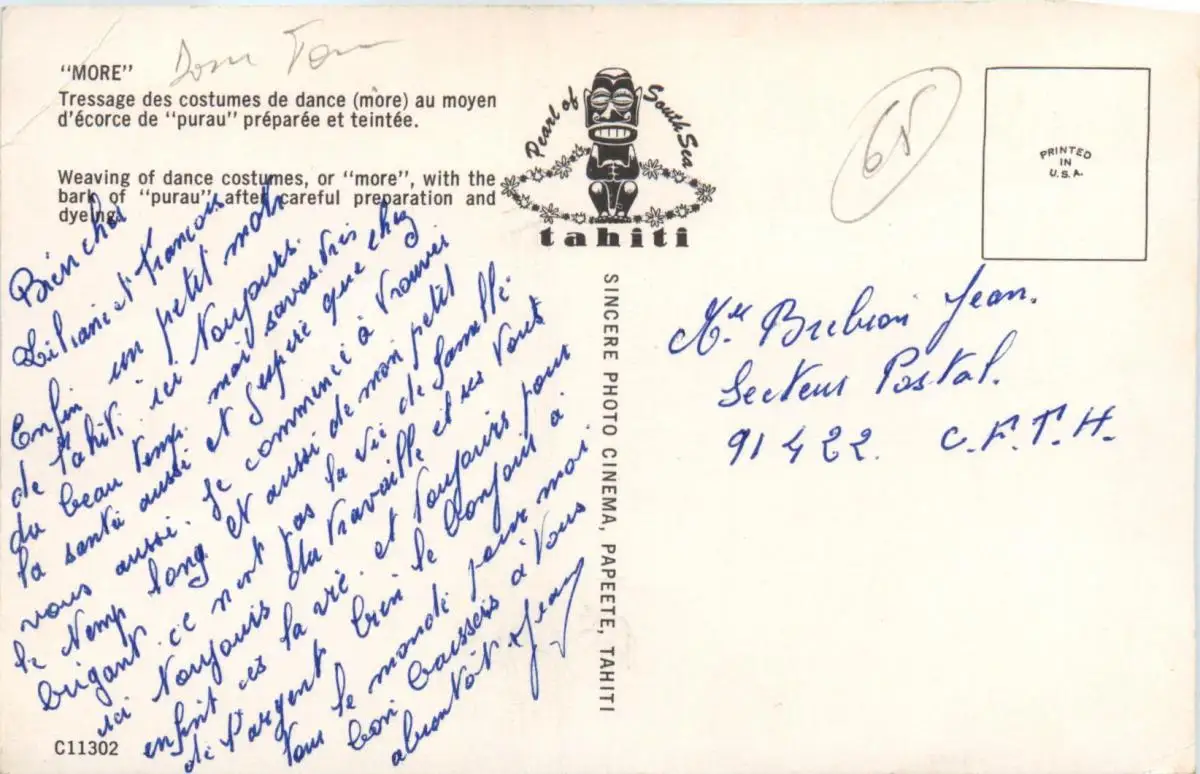 Dom Tom
"MORE"
Tressage des costumes de dance (more) au moyen
d'écorce de "purau" préparée et teintée.
Weaving of dance costumes, or "more", with the
bark of "purau" after careful preparation and
dyeing.
Pearl of South Sea
tahiti
65
PRINTED
IN
U.S.A.
SINCERE PHOTO CINEMA, PAPEETE, TAHITI
Bien cher
Liliane et François
Enfin un petit mots
de Tahiti. ici Toujours.
du beau Temps. mais savas. très
la santé aussi et J'espère que chez
vous aussi. Je commence à Trouver
le Temp long et aussi de mon petit
brigant. ce n'est pas la vie de famille.
ici Toujours du Travaille et ses Tout
enfint ces la vie. et Toujours pour
de l'argent bien le bonjour à
Tous le monde pour moi.
bon baissers à Vous
abientôt Jean
Mr Jean.
Secteur Postal.
91422. C.F.T.H.
C11302